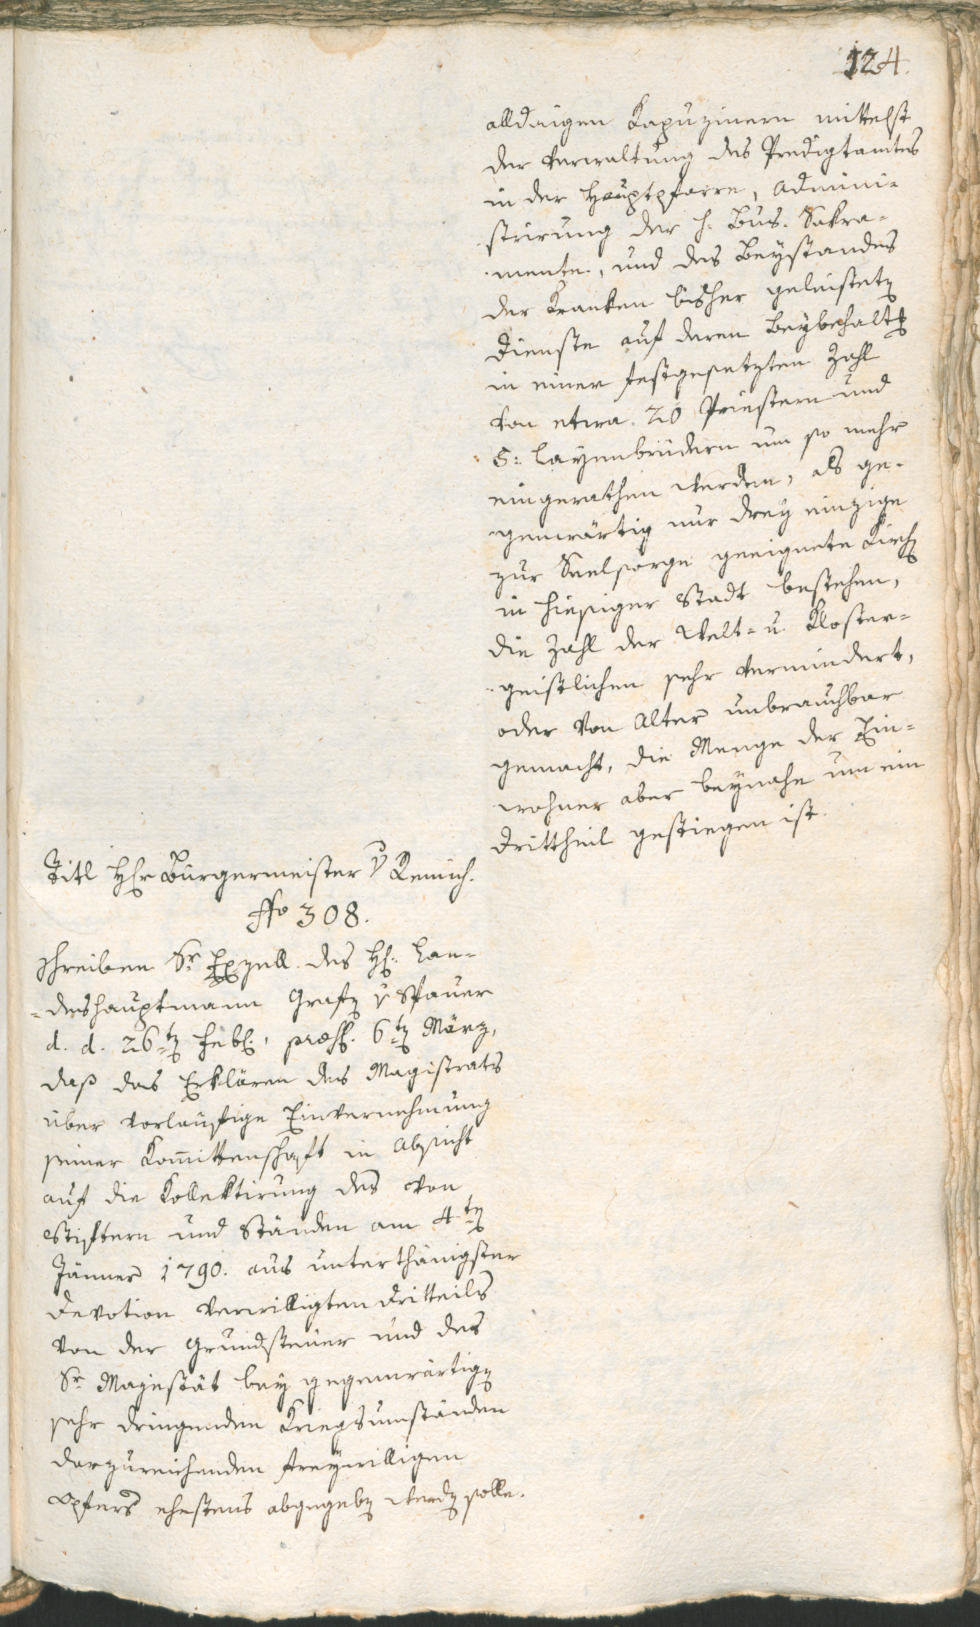 124.
alldaigen Kapuzinern mittelst
der Verwaltung des Predigtamtes
in der Hauptpfarre, Admini-
strirung der h. Bus. Sakra-
mente, und des Beystandes
der Kranken bisher geleistete
Dienste auf deren Beybehaltg
in einer festgesetzten Zahl
von etwa 20 Priestern und
5: Layenbrüdern um so mehr
eingerathen werden, als ge-
genwärtig nur drey einzige
zur Seelsorge geeignete Kirchen
in hiesiger Stadt bestehen,
die Zahl der Welt- u. Kloster-
geistlichen sehr vermindert,
oder von Alter unbrauchbar
gemacht, die Menge der Ein-
wohner aber beynahe um ein
Drittheil gestiegen ist.
Titl Hr Bürgermeister v Remich.
Fo 308.
Schreiben Sr Exzell. des H: Lan-
deshauptmann Grafen v Spauer
d. d. 26ten Febr., præs. 6ten März,
daß das Erklären des Magistrats
über vorläufige Einvernehmung
seiner Komittenschaft in Absicht
auf die Kollektirung des von
Stiftern und Ständen am 4ten
Jänner 1790. aus unterthänigster
Devotion verwilligten Dritteils
von der Grundsteuer und des
Sr Majestät bey gegenwärtigen
sehr dringenden Kriegsumständen
darzureichenden freywilligen
Opfers ehestens abgegeben werden solle.